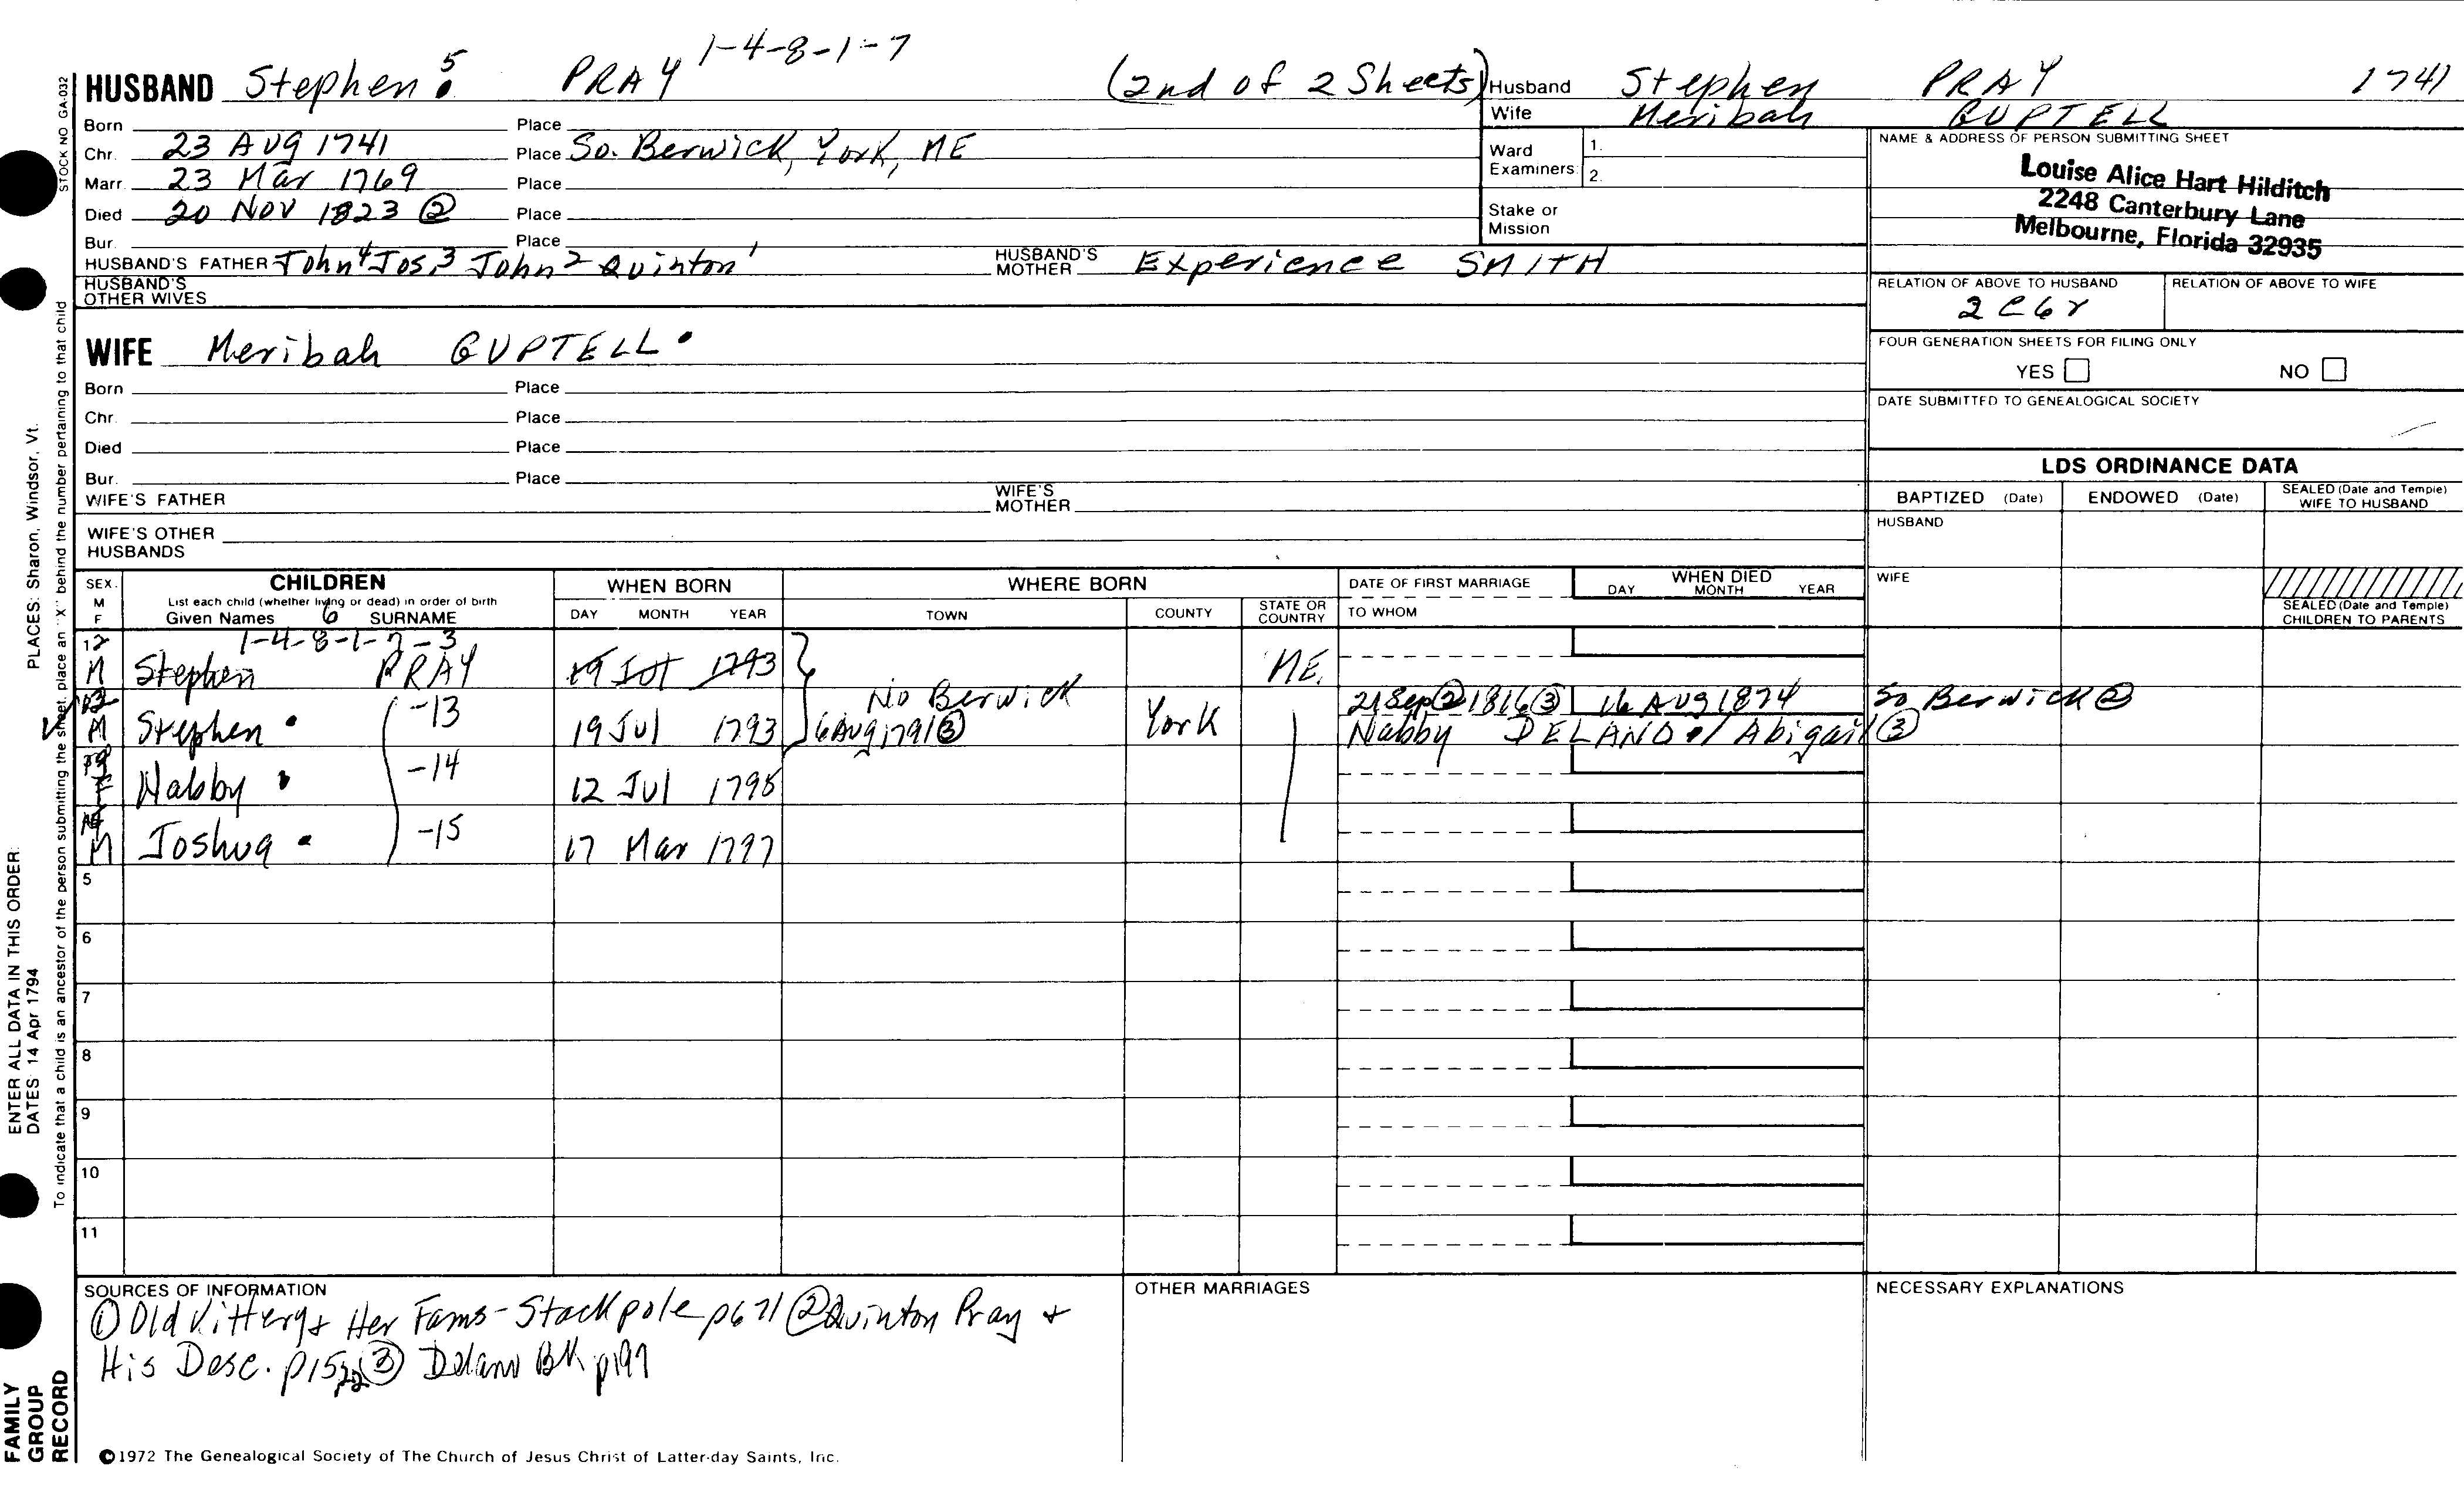 1-4-8-1-7
HUSBAND Stephen 5 PRAY (2nd of 2 Sheets) Husband Stephen PRAY 1741
Wife Meribah GUPTELL
Born Place
Chr. 23 AUG 1741 Place So. Berwick, York, ME
Marr. 23 Mar 1769 Place
Died 20 Nov 1823 ② Place
Bur. Place
HUSBAND'S FATHER John⁴ Jos.³ John² Quinton¹ HUSBAND'S MOTHER Experience SMITH
HUSBAND'S OTHER WIVES
Ward Examiners: 1.
2.
Stake or Mission
NAME & ADDRESS OF PERSON SUBMITTING SHEET
Louise Alice Hart Hilditch
2248 Canterbury Lane
Melbourne, Florida 32935
RELATION OF ABOVE TO HUSBAND RELATION OF ABOVE TO WIFE
2C6r
WIFE Meribah GUPTELL
Born Place
Chr. Place
Died Place
Bur. Place
WIFE'S FATHER WIFE'S MOTHER
WIFE'S OTHER HUSBANDS
FOUR GENERATION SHEETS FOR FILING ONLY
YES NO
DATE SUBMITTED TO GENEALOGICAL SOCIETY
LDS ORDINANCE DATA
BAPTIZED (Date) ENDOWED (Date) SEALED (Date and Temple) WIFE TO HUSBAND
HUSBAND
WIFE
SEALED (Date and Temple) CHILDREN TO PARENTS
SEX. M F CHILDREN WHEN BORN WHERE BORN DATE OF FIRST MARRIAGE WHEN DIED
List each child (whether living or dead) in order of birth DAY MONTH YEAR
Given Names 6 SURNAME DAY MONTH YEAR TOWN COUNTY STATE OR COUNTRY TO WHOM
12 1-4-8-1-7-3
M Stephen PRAY 19 Jul 1793 ME.
No Berwick 21 Sep ② 1816 ③ 16 AUG 1874 So Berwick ②
M Stephen -13 19 Jul 1793 6 Aug 1791 ③ York Nabby DELAND / Abigail ③
F Nabby -14 12 Jul 1795
M Joshua -15 17 Mar 1797
5
6
7
8
9
10
11
SOURCES OF INFORMATION OTHER MARRIAGES NECESSARY EXPLANATIONS
① Old Kittery & Her Fams - Stackpole p671 ② Quinton Pray &
His Desc. p15, 22 ③ Delano BK p199
©1972 The Genealogical Society of The Church of Jesus Christ of Latter-day Saints, Inc.
STOCK NO GA-032
To indicate that a child is an ancestor of the person submitting the sheet, place an "X" behind the number pertaining to that child
PLACES: Sharon, Windsor, Vt.
ENTER ALL DATA IN THIS ORDER:
DATES 14 Apr 1794
FAMILY
GROUP
RECORD